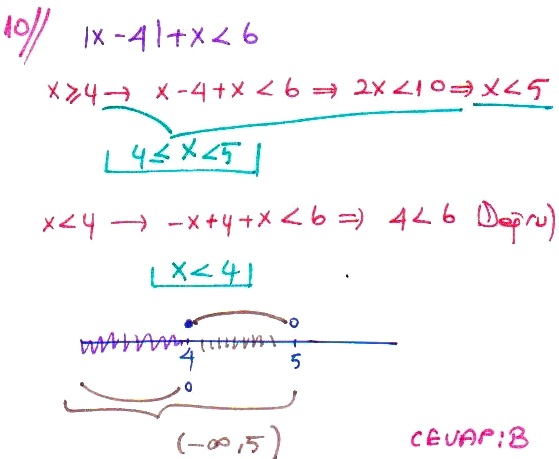 10// |x-4|+x<6
x≥4→ x-4+x<6 ⇒ 2x<10 ⇒ x<5
4≤x<5
x<4 → -x+4+x<6 ⇒ 4<6 (Doğru)
x<4
4 5
(-∞,5)
CEVAP:B